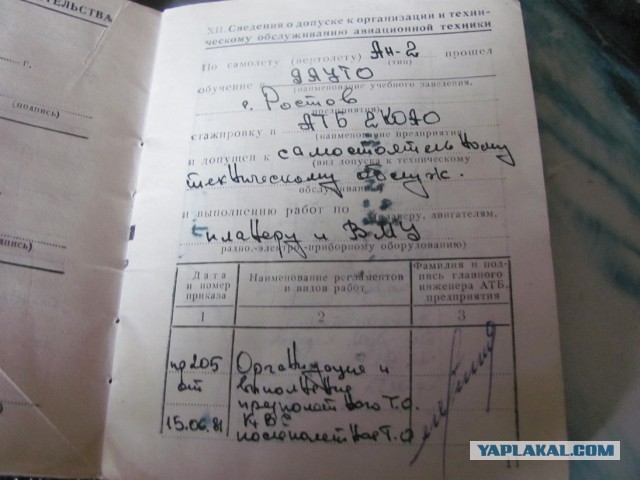 ТЕЛЬСТВА
г.
(подпись)
пись)
XII. Сведения о допуске к организации и техни-
ческому обслуживанию авиационной техники
По самолету (вертолету) Ан-2 прошел
(тип)
обучение в УАУТО
(наименование учебного заведения,
г. Ростов
предприятия)
стажировку в АТБ 2КОАО
(наименование предприятия)
и допущен к самостоятельному
(вид допуска к техническому
техническому обслуж.
обслуживанию)
и выполнению работ по
(планеру, двигателям,
планеру и ВМУ
радио-электро-приборному оборудованию)
Дата и номер приказа
Наименование регламентов и видов работ
Фамилия и подпись главного инженера АТБ, предприятия
1 2 3
пр 205
от
15.06.81
Организация и
выполнение
предполетного Т.О.
КВС
послеполетное Т.О
11
YAPLAKAL.COM